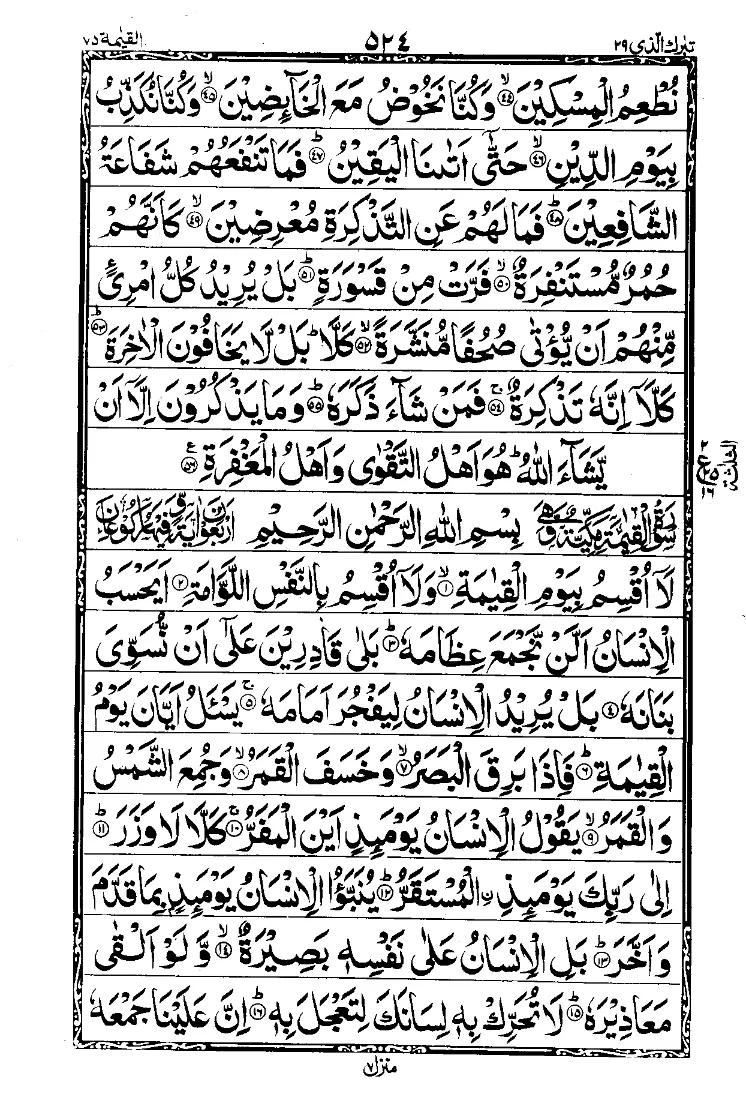 تبرك الذي ٢٩ ٥٢٤ القيمة ٧٥
نُطْعِمُ الْمِسْكِيْنَ ۙ﴿۴۴﴾ وَكُنَّا نَخُوْضُ مَعَ الْخَآئِضِيْنَ ۙ﴿۴۵﴾ وَكُنَّا نُكَذِّبُ
بِيَوْمِ الدِّيْنِ ۙ﴿۴۶﴾ حَتّٰۤى اَتٰىنَا الْيَقِيْنُ ؕ﴿۴۷﴾ فَمَا تَنْفَعُهُمْ شَفَاعَةُ
الشَّافِعِيْنَ ؕ﴿۴۸﴾ فَمَا لَهُمْ عَنِ التَّذْكِرَةِ مُعْرِضِيْنَ ۙ﴿۴۹﴾ كَاَنَّهُمْ
حُمُرٌ مُّسْتَنْفِرَةٌ ۙ﴿۵۰﴾ فَرَّتْ مِنْ قَسْوَرَةٍ ؕ﴿۵۱﴾ بَلْ يُرِيْدُ كُلُّ امْرِئٍ
مِّنْهُمْ اَنْ يُّؤْتٰى صُحُفًا مُّنَشَّرَةً ۙ﴿۵۲﴾ كَلَّا ؕ بَلْ لَّا يَخَافُوْنَ الْاٰخِرَةَ ؕ﴿۵۳﴾
كَلَّاۤ اِنَّهٗ تَذْكِرَةٌ ۚ﴿۵۴﴾ فَمَنْ شَآءَ ذَكَرَهٗ ؕ﴿۵۵﴾ وَمَا يَذْكُرُوْنَ اِلَّاۤ اَنْ
يَّشَآءَ اللّٰهُ ؕ هُوَ اَهْلُ التَّقْوٰى وَاَهْلُ الْمَغْفِرَةِ ﴿۵۶﴾ ع
الثلثة
سورة القيمة مكية وهي بِسْمِ اللّٰهِ الرَّحْمٰنِ الرَّحِيْمِ اربعون اية وفيها ركوعان
لَاۤ اُقْسِمُ بِيَوْمِ الْقِيٰمَةِ ۙ﴿۱﴾ وَلَاۤ اُقْسِمُ بِالنَّفْسِ اللَّوَّامَةِ ؕ﴿۲﴾ اَيَحْسَبُ
الْاِنْسَانُ اَلَّنْ نَّجْمَعَ عِظَامَهٗ ؕ﴿۳﴾ بَلٰى قَادِرِيْنَ عَلٰۤى اَنْ نُّسَوِّىَ
بَنَانَهٗ ﴿۴﴾ بَلْ يُرِيْدُ الْاِنْسَانُ لِيَفْجُرَ اَمَامَهٗ ۚ﴿۵﴾ يَسْئَلُ اَيَّانَ يَوْمُ
الْقِيٰمَةِ ؕ﴿۶﴾ فَاِذَا بَرِقَ الْبَصَرُ ۙ﴿۷﴾ وَخَسَفَ الْقَمَرُ ۙ﴿۸﴾ وَجُمِعَ الشَّمْسُ
وَالْقَمَرُ ۙ﴿۹﴾ يَقُوْلُ الْاِنْسَانُ يَوْمَئِذٍ اَيْنَ الْمَفَرُّ ۚ﴿۱۰﴾ كَلَّا لَا وَزَرَ ؕ﴿۱۱﴾
اِلٰى رَبِّكَ يَوْمَئِذِ ِۨالْمُسْتَقَرُّ ؕ﴿۱۲﴾ يُنَبَّؤُا الْاِنْسَانُ يَوْمَئِذٍۭ بِمَا قَدَّمَ
وَاَخَّرَ ؕ﴿۱۳﴾ بَلِ الْاِنْسَانُ عَلٰى نَفْسِهٖ بَصِيْرَةٌ ۙ﴿۱۴﴾ وَّلَوْ اَلْقٰى
مَعَاذِيْرَهٗ ؕ﴿۱۵﴾ لَا تُحَرِّكْ بِهٖ لِسَانَكَ لِتَعْجَلَ بِهٖ ؕ﴿۱۶﴾ اِنَّ عَلَيْنَا جَمْعَهٗ
منزل ٧